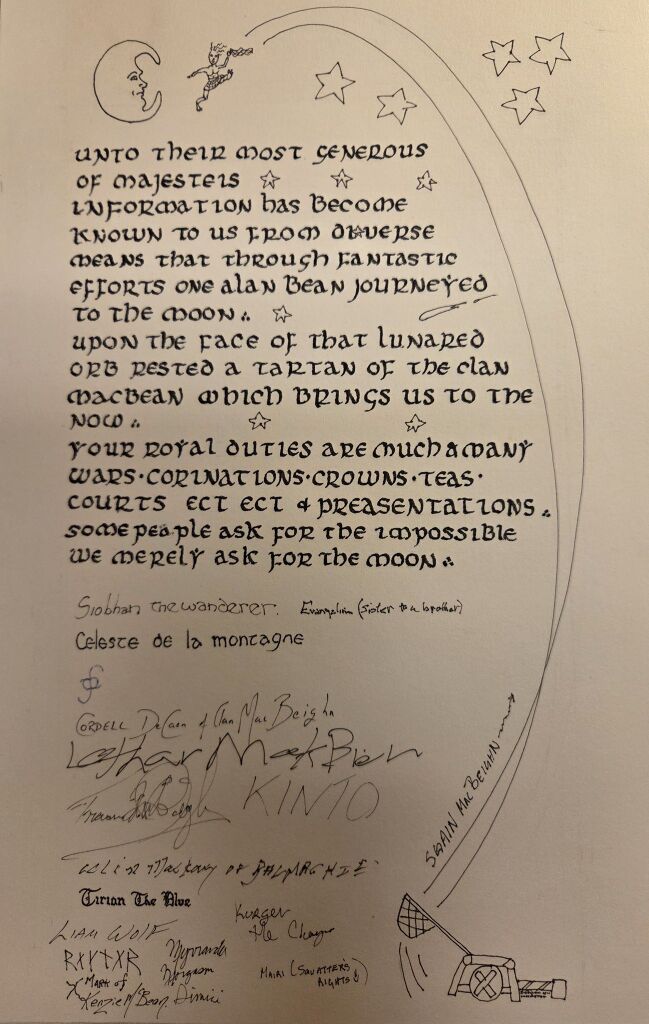 unto their most generous
of majesteis
information has become
known to us from diverse
means that through fantastic
efforts one alan bean journeyed
to the moon
upon the face of that lunared
orb rested a tartan of the clan
macbean which brings us to the
now
your royal duties are much & many
wars·corinations·crowns·teas·
courts ect ect & preasentations.
some people ask for the impossible
we merely ask for the moon
Siobhan the wanderer. (sister to a brother)
Celeste de la montagne
Cordell of Clan Mac Beighn
Lothar
KINTO
SGAIN Mac BEIGHN
of BALMAGHIE
Tirian The Blue
Kurger
the
LIAM WOLF
ᚱᚨᚷᚾᚨᚱ
MAIRI (SQUATTER'S
RIGHTS)
X Mark of
Kenzie McBean